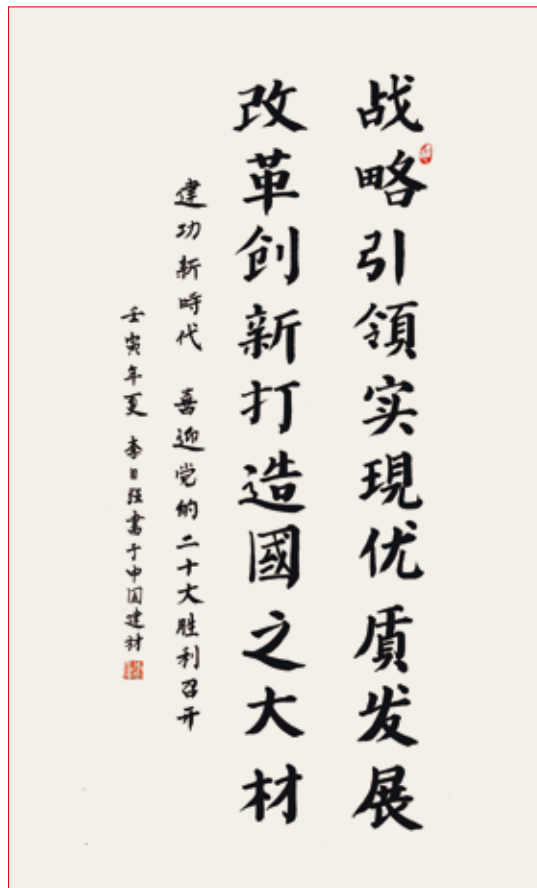 战略引領实現优质发展
改革创新打造國之大材
建功新時代 喜迎党的二十大胜利召开
壬寅年夏 李日强書于中国建材